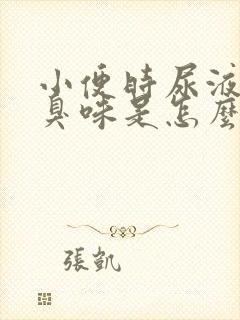 小便時尿液
臭味是怎麼
張凱